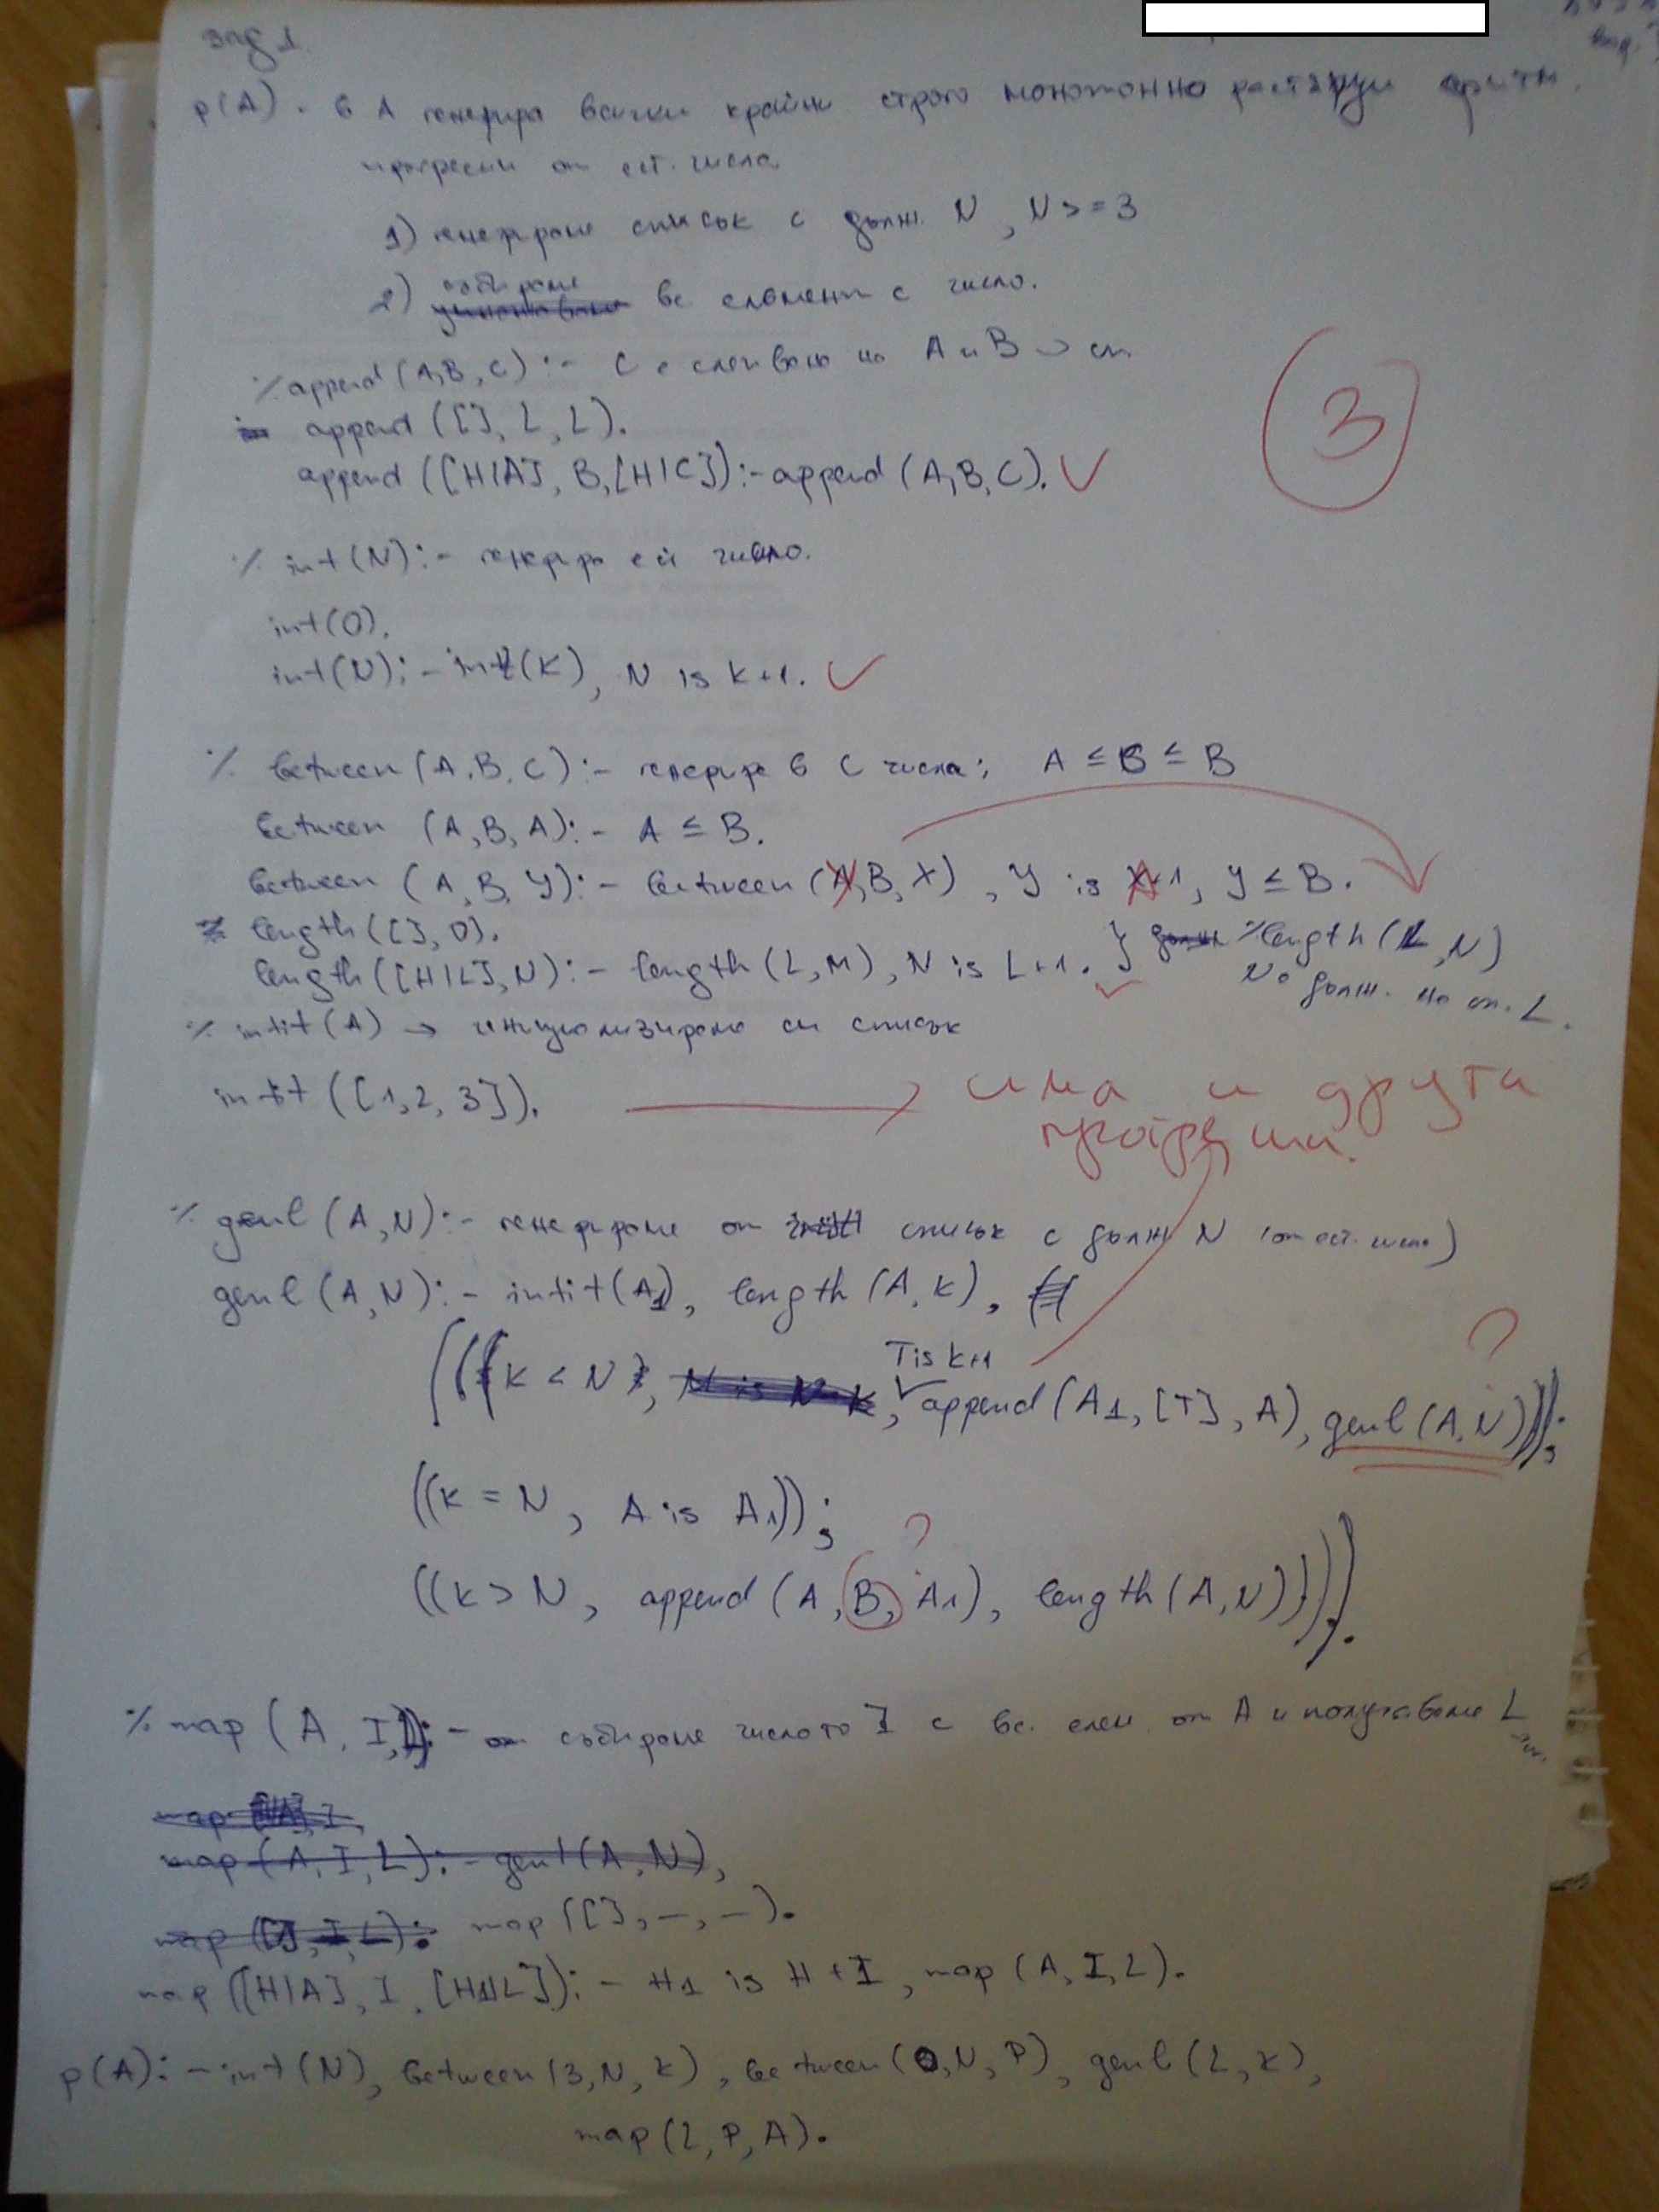 зад 1
p(A). в A генерира всички крайни строго монотонно растящи аритм.
прогресии от ест. числа
1) генерираме списък с дълж. N, N >= 3
2) събираме вс елементи с число.
% append(A,B,C) :- C е слепване на A и B -> сп.
append([], L, L).
append([H|A], B, [H|C]) :- append(A,B,C). ✓
3
% int(N) :- генерира ест число.
int(0).
int(N) :- int(K), N is K+1. ✓
% between(A,B,C) :- генерира в C числа; A ≤ C ≤ B
between (A,B,A) :- A ≤ B.
between (A,B,Y) :- between(A,B,X), Y is X+1, Y ≤ B.
length([],0).
length([H|L],N) :- length(L,M), N is L+1. } % length(L,N)
N е дълж. на сп. L.
% intit(A) -> инициализираме си списък
intit([1,2,3]).
има и други
прогресии.
% genl(A,N) :- генерираме от списък с дълж N (от ест. числа)
genl(A,N) :- intit(A1), length(A,K),
(((K < N), T is K+1, append(A1,[T],A), genl(A,N))); ?
((K = N, A is A1));
((K > N, append(A,B,A1), length(A,N)))). ?
% map(A,I,L) :- събираме числото I с вс. елем. от A и получаваме L
map([],_,_).
map([H|A], I, [H1|L]) :- H1 is H+I, map(A,I,L).
p(A) :- int(N), between(3,N,K), between(0,N,P), genl(L,K),
map(L,P,A).